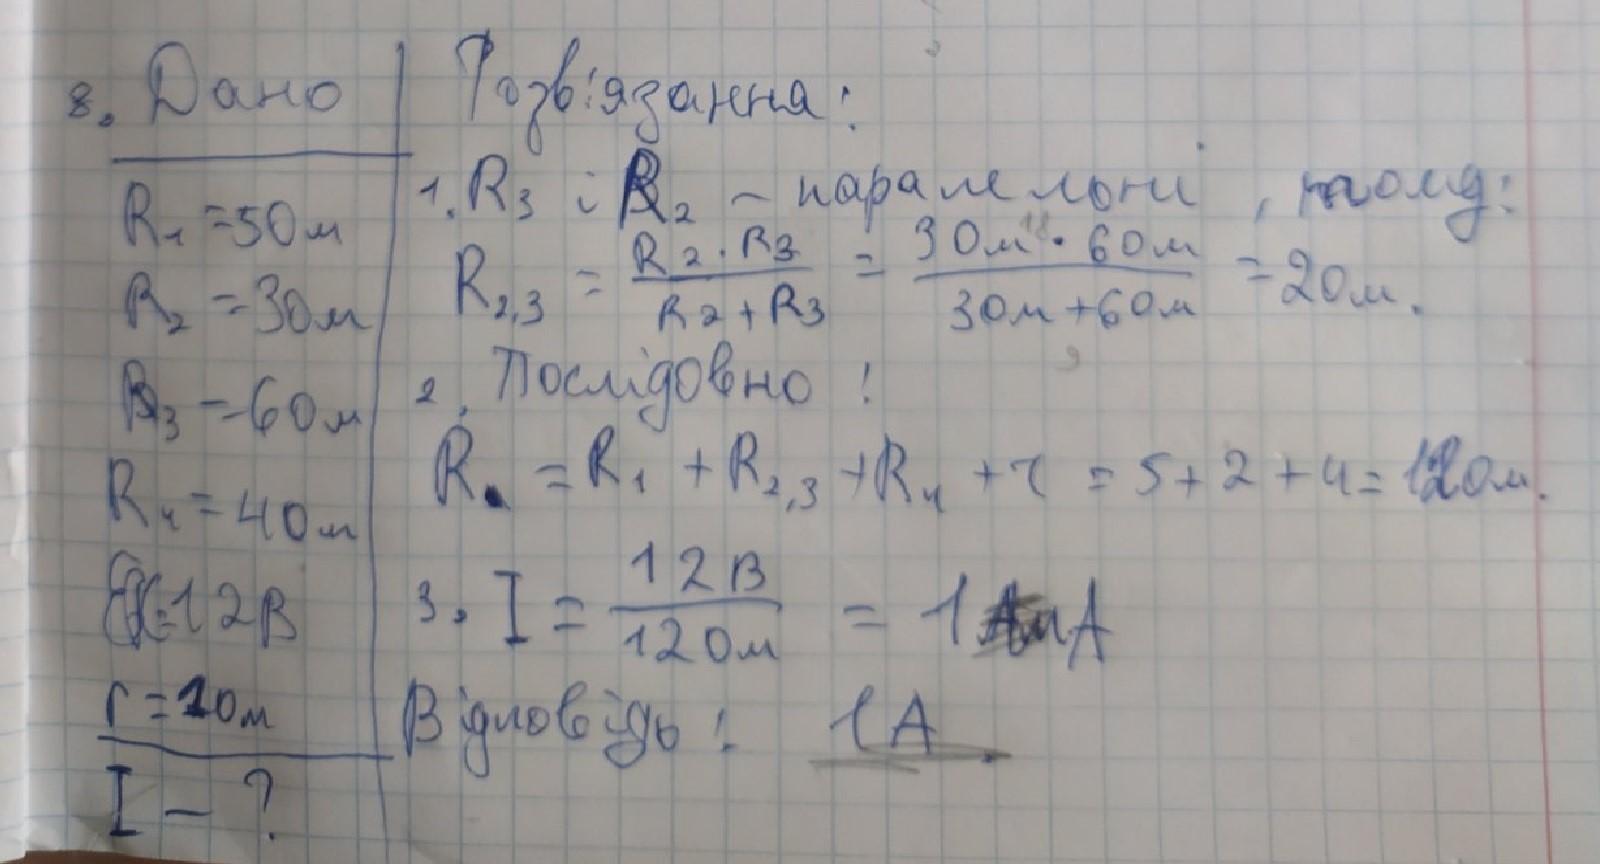 8. Дано
R₁ = 5 Ом
R₂ = 3 Ом
R₃ = 6 Ом
R₄ = 4 Ом
= 12 В
r = 1 Ом
I – ?
Розв'язання:
1. R₃ і R₂ – паралельні, тому:
R₂,₃ = (R₂ · R₃)/(R₂ + R₃) = (3 Ом · 6 Ом)/(3 Ом + 6 Ом) = 2 Ом.
2. Послідовно:
R = R₁ + R₂,₃ + R₄ + r = 5 + 2 + 4 = 12 Ом.
3. I = 12 В/12 Ом = 1 А
Відповідь: 1 А.